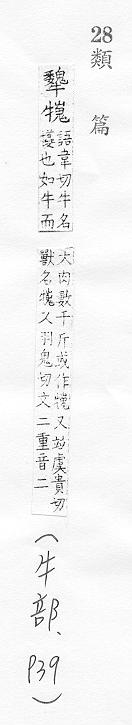 28
類篇
犩
語韋切牛名
也如牛而
大肉數千斤或作 又並虞貴切
獸名 又羽鬼切文二重音二
(牛部、P39)